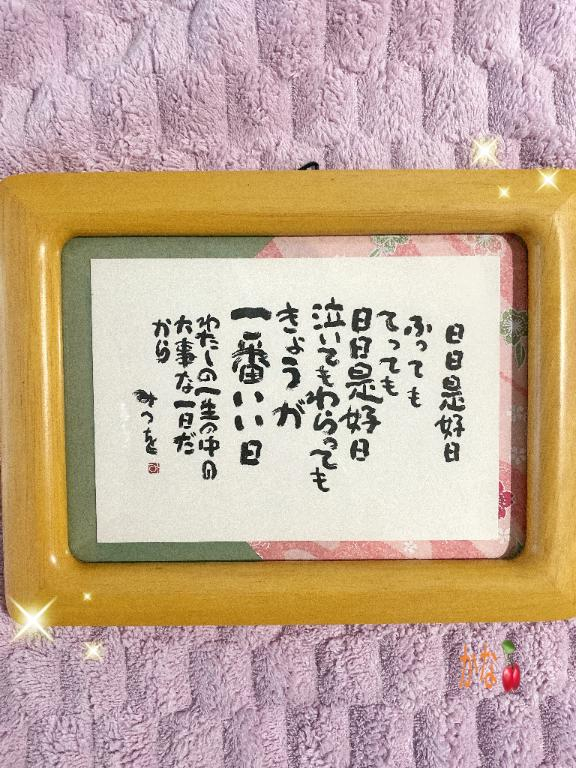 日日是好日
ふっても
てっても
日日是好日
泣いてもわらっても
きょうが
一番いい日
わたしの一生の中の
大事な一日だ
から
みつを
かな